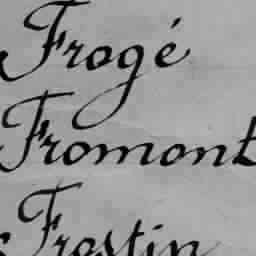 Frogé
Fromont
Frostin